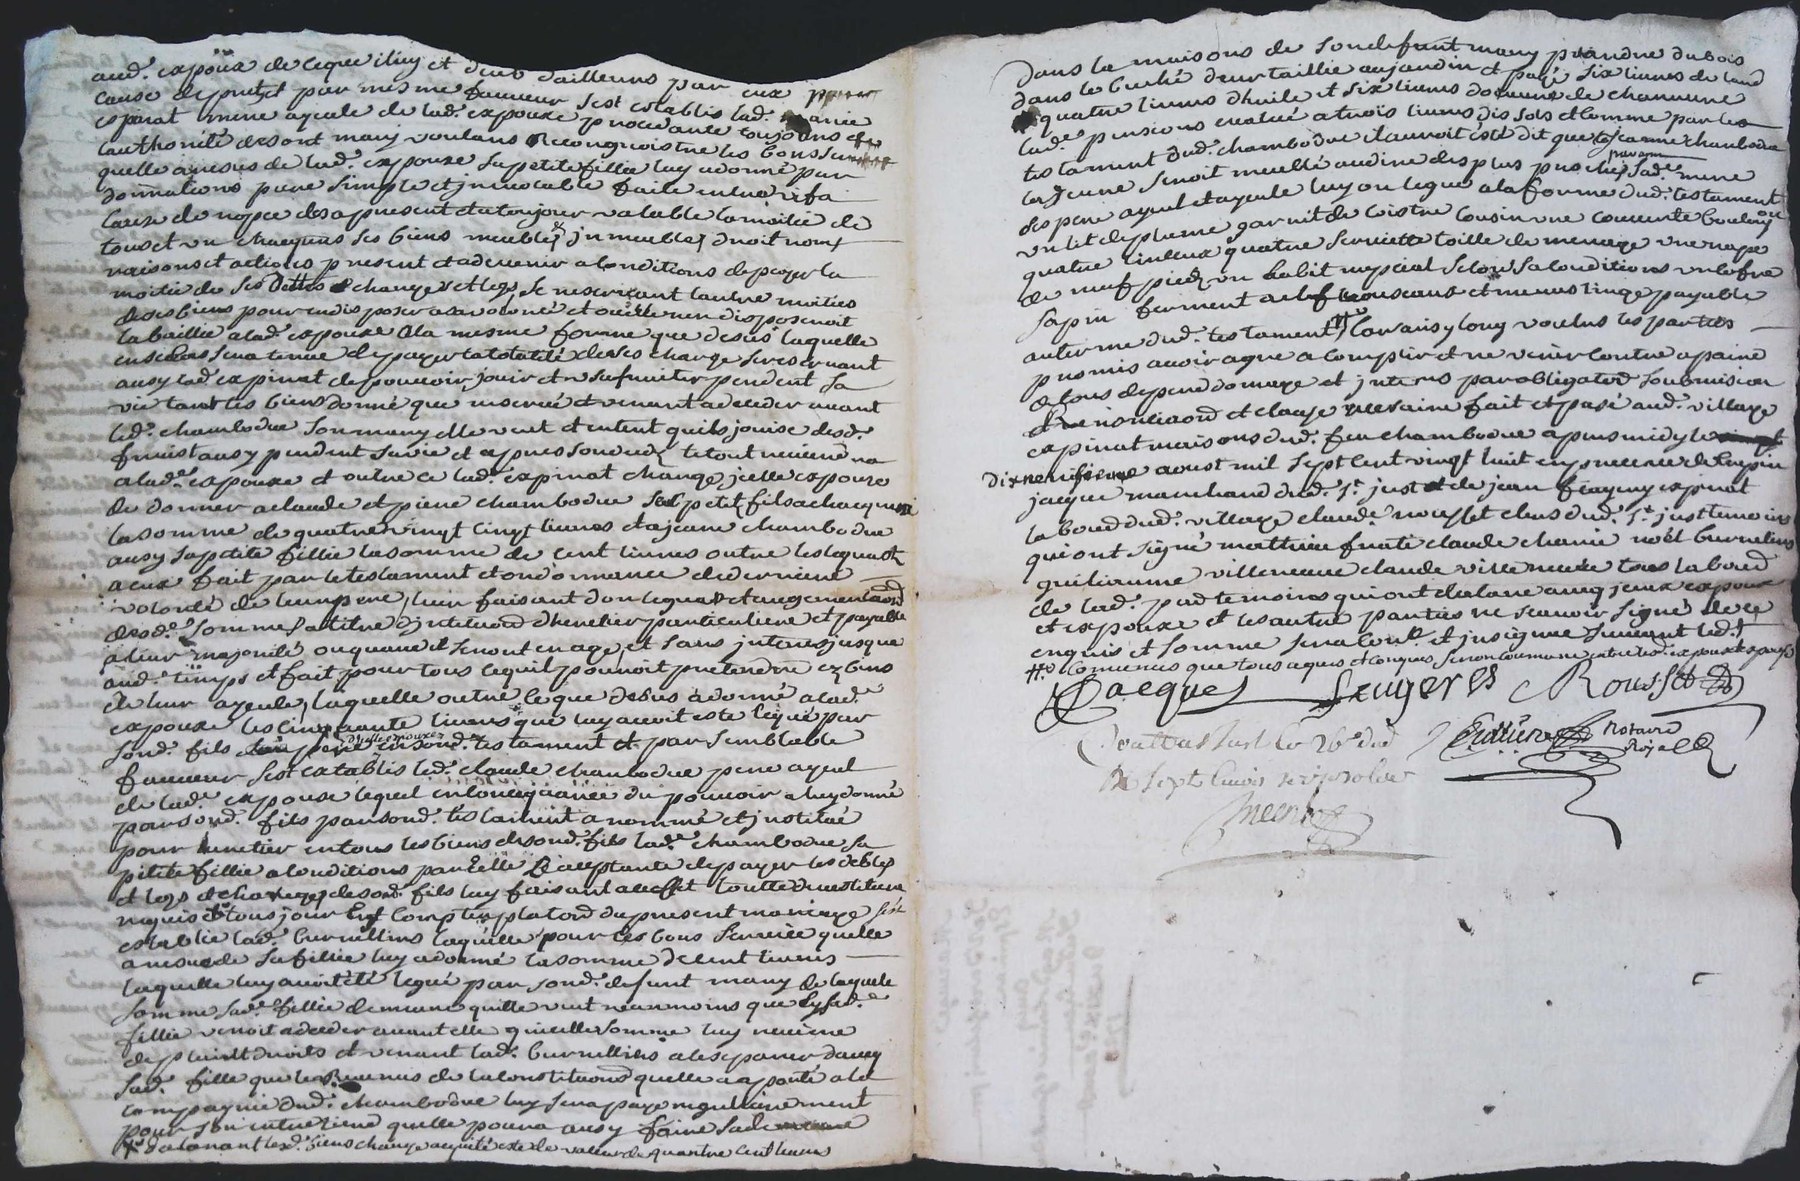 aud. expoux de ceque illuy et dub dailleurs par eux
cause de pret et par mesme faveur sest establis lad. marie
espinat mere ayeule de lad. expouse procedante toujours de
lauthorité de sont mary voulans recongnoistre les bons ser
quelle a resus de lad. expouse sa petite fillie luy adonné par
donnations pure simple et jrrevocable faite entre vifs a
cause de nopce des apresent et atoujour valable la moitié de
tous et un chacquns ses biens meubles jmmeubles droit noms
raisons et actions present et advenir a conditions de payer la
moitié de ses dettes charges et legs se reservant lautre moities
de ses biens pour en disposer a sa volonté et ou elle nen disposeroit
la baillie alad. expouse a la mesme forme que desus laquelle
en se cas sera tenue de payer la totalité de ses charge se reservant
ausy lad. espinat de pouvoir jouir et usufruiter pendent sa
vie tant les biens donné que reservé et venant adeceder avant
led. chambodue son mary elle veut et entent quils jouise desd.
fruist ausy pendent sa vie et apres son deces le tout reviendra
alad. expouse et outre ce lad. espinat charge jcelle expouse
de donner a claude et piere chambodue ses petit fils a chacqun
la somme de quatre vingt cinqt livres et a jeane chambodue
ausy sa petite fillie la somme de cent livres outre les legats
a eux fait par le testament et ordonnance de derniere
volonté de leur pere leur faisant don legat et augmentaon
desd. sommes a titre djnstituon dheretier particuliere et payable
a leur majorité ou quand jl seront en age et sans jnterest jusque
aud. temps et fait pour tous ce quil pouroit pretendre es biens
de leur ayeule, laquelle outre ce que desus a donné alad.
expouse les cinquante livres que luy avoit este legué par
sond. fils en sond. testament et par semblable
faveur sest establis led. claude chambodue pere ayeul
de lad. expouse lequel en consequance du pouvoir a luy donné
par sond. fils par sond. testament a nommé et jnstitué
pour heretier en tous les biens de sond. fils lad. chambodue sa
petite fillie a conditions par elle acceptante de payer les debtes
et legs et charges de sond. fils luy faisant a ceffet toutte
requis et tous jour en comptemplaon du present mariage sest
establie lad. burrellins laquelle pour les bons service quelle
a resus de sa fillie luy a donné la somme de cent livres
laquelle luy avoit été legué par sond. defunt mary de laquele
somme sad. fillie demeure quitte veut neanmoins que sy sad.
fillie venoit adeceder avant elle que celle somme luy reviene
de plain droits et venant lad. burrelliers a les separer davec
sad. fille que les revenus de la constituons quelle a aporté a la
compagnie dud. chambodue luy sera paye regulierement
pour son entretiens quelle poura ausy faire sa demeure
declarant lesd. biens charge acquité este de valleur de quattre cent livres
dans la maisons de son defunt mary prandre du bois
dans le buché deurtaillie au jardin et payé six livres de lard
quatre livres dhuile et six livres doeuvre de chanvre
lad. pensions evalué a trois livres dix sols et comme par les
testament dud. chambodue il auroit este dit que jeanne chambodue
la jeune seroit meublé au dire des plus proches par sad. mere
des pere ayeul et ayeule luy on legué a la forme dud. testament
un lit de plume garnit de coistre cousin une couverte
quatre linceux quatre serviette toille de menage une nape
de neuf pieds un habit nupcial selon sa conditions un cofre
sapin ferment a clef trousseaux et menus linge payable
au terme dud. testament car ainsy long voulus les parties
promis avoir agre a complir et ne venir contre a paine
de tous depens domage et jnterets par obligaons soubmision
renonciaons et clause necesaire fait et pasé aud. village
espinat maisons dud. feu chambodue apres midy le
dixneufieme aoust mil sept cent vingt huit en presence de
jacque marchand dud. st. just et de jean feugery espinat
laboud dud. village claude rousset clers dud. st. just temoins
qui ont signé mathieu fruti claude chavie noel burrelins
guiliaume villeneuve claude villeneuve tous laboud
de lad. par temoins qui ont declare avecq jceux expoux
et expouse et les autre parties ne scavoir signé de ce
enquis et somme sera conle et jnsignue suivant led.
convenus que tous aques et conques seron commune entre lesd. expoux et expouse
Jacques feugeres Rousset
notaire
Royal